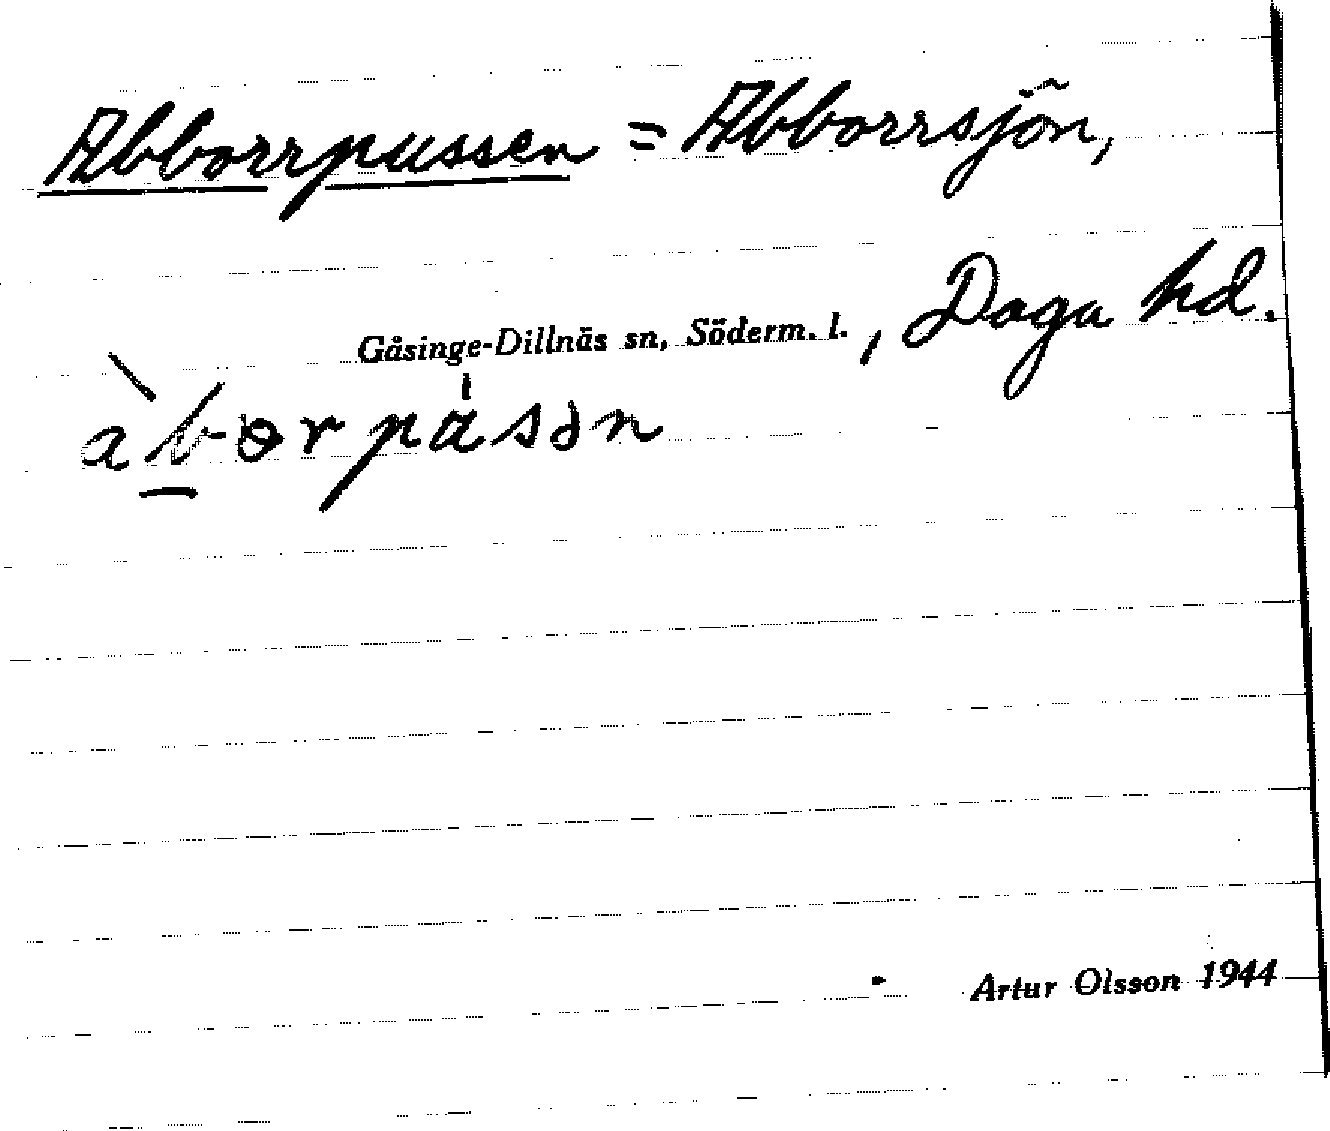 Abborrpussen = Abborrsjön,
Gåsinge-Dillnäs sn, Söderm. l. , Daga hd.
àb̲orpása̍n
Artur Olsson 1944